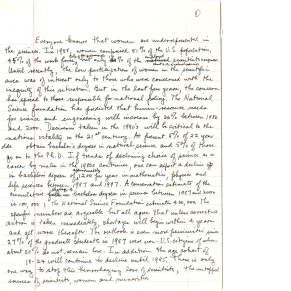 Everyone knows that women are underrepresented in
the sciences. In 1985, women comprised 51% of the U.S. population,
45% of the work force, but only % of the
Until recently, the low participation of women in the scientific
was of interest only to those who were concerned with the
inequity of this situation. But in the last few years, the concern
has spread to those responsible for national policy. The National
Science Foundation has predicted that human resource needs
for science and engineering will increase by 36% between 1986
and 2000. Decisions taken in the 1990's will be critical to the
nation's vitality in the 21st century. At present 5% of 22 year
olds obtain bachelor's degrees in natural science, and 5% of those
go on to the Ph.D. If trends of declining choice of science as a
career by males in the 1980s continue, one can expect a decline
in bachelor degrees of 1,200 per year in mathematics, physics and
life sciences between 1987 and 1987. A conservative estimate of the
cumulative in bachelor degrees in science between 1987 and 2000
is 100,000; the National Science Foundation estimates 400,000. The
specific numbers are arguable but all agree that unless corrective
action is taken immediately shortages will begin within a years
and get worse thereafter. The outlook is even more pessimistic since
27% of the graduate students in 1987 were non-U.S. citizens of whom
about 50% do not remain here. In addition the age cohort of
18-24 will continue to decline until 1995. There is only
one way to stop the hemorrhaging loss of scientists, the untapped
sources of scientists, women and minorities